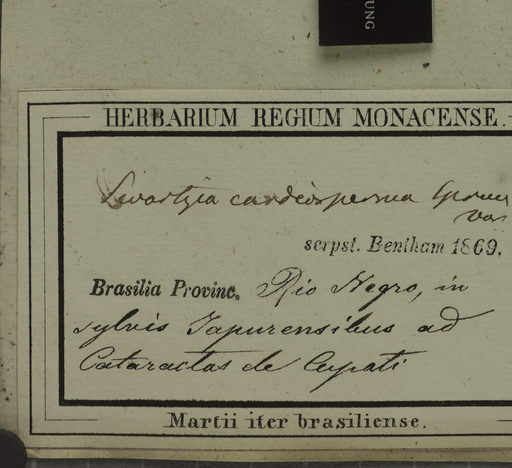 UNG
HERBARIUM REGIUM MONACENSE.
Swartzia cardiosperma Spruce
var
scrpst. Bentham 1869.
Brasilia Provinc. Rio Negro, in
sylvis Japurensibus ad
Cataractas de Cupati
Martii iter brasiliense.